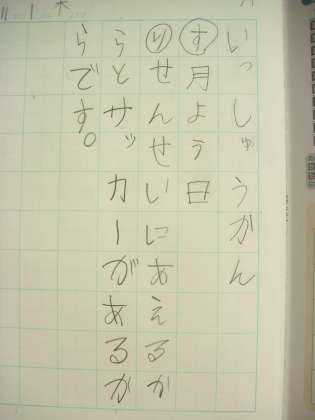 いっしゅうかん
す月よう日
りせんせいにあえるか
らとサッカーがあるか
らです。